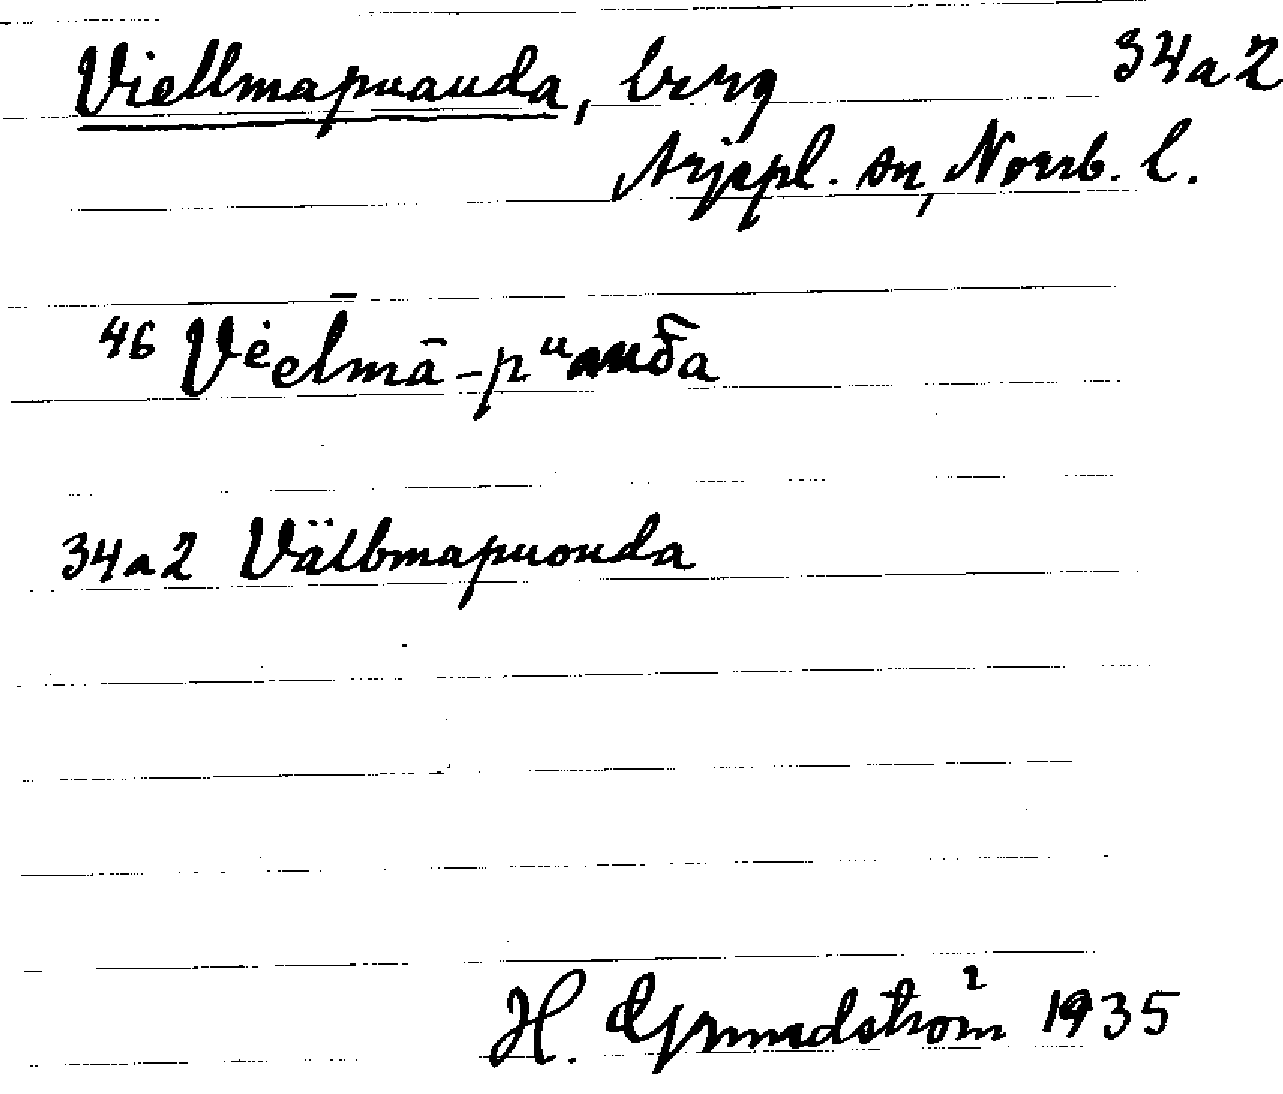 Viellmapuauda, berg 34a2
Arjepl. sn, Norrb. l.
46 Vėelmā-pᵘauδ̄a
34a2 Välbmapuouda
H. Grundström 1935